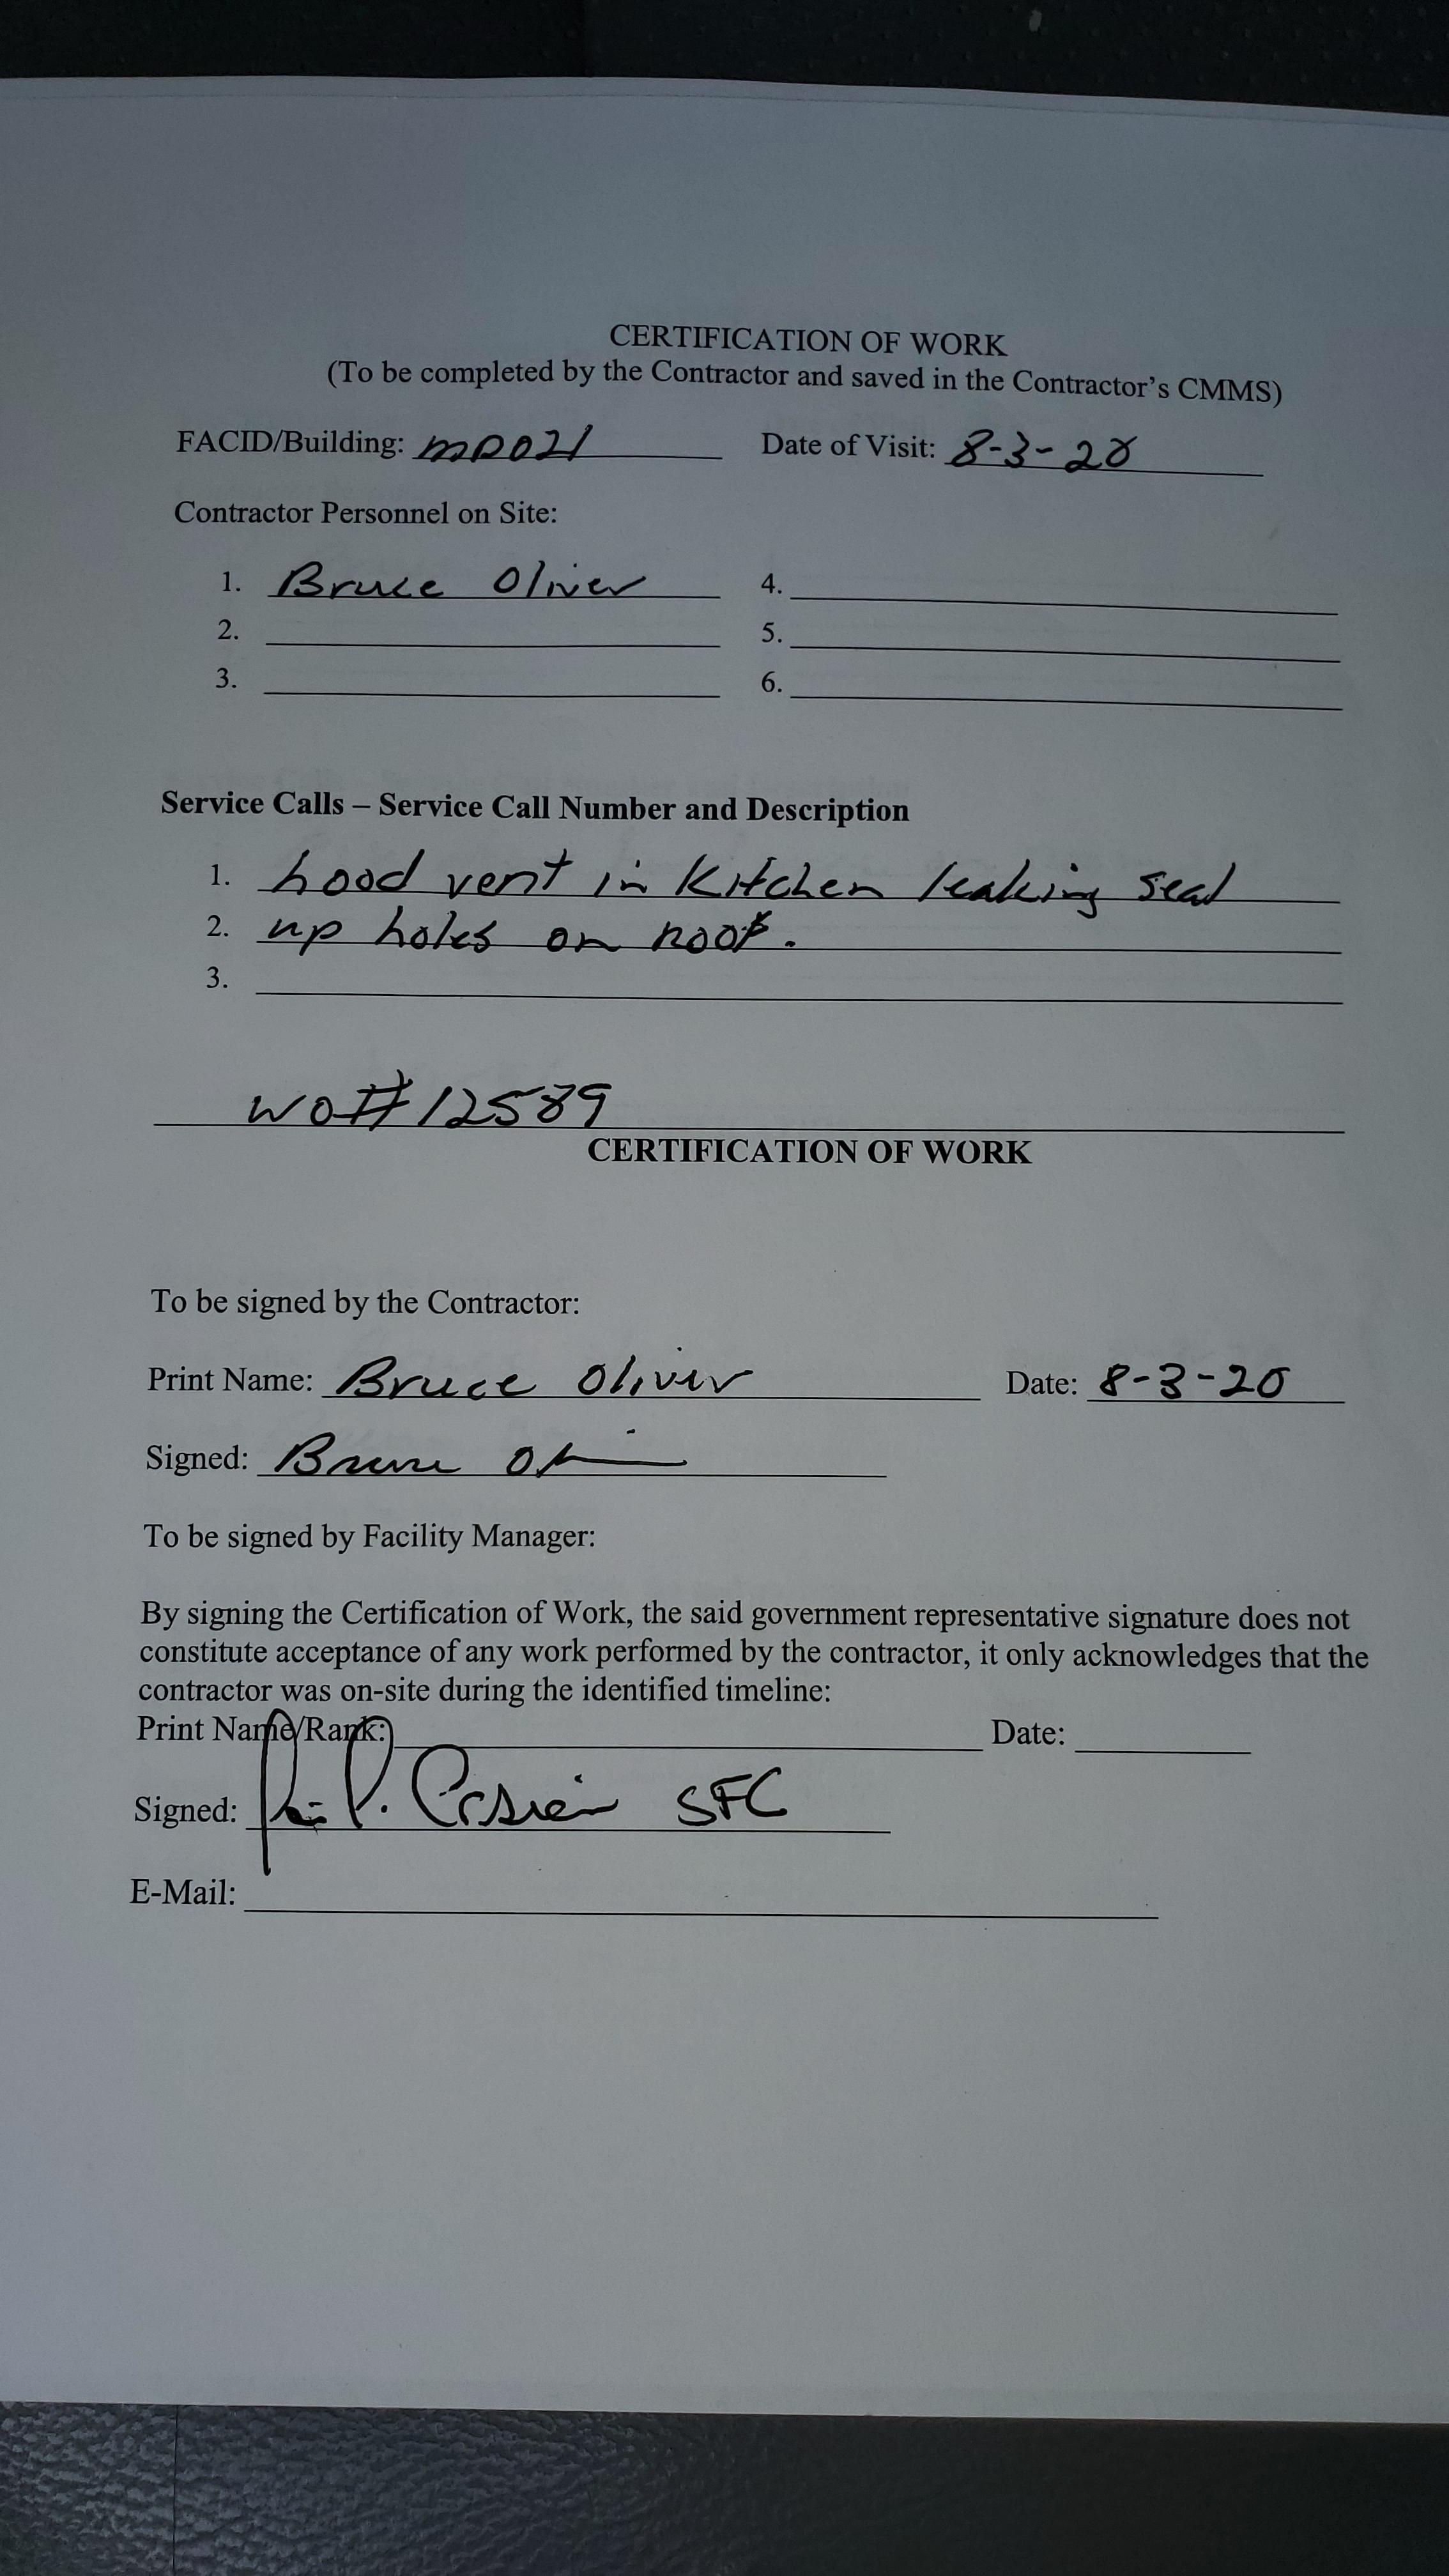 CERTIFICATION OF WORK
(To be completed by the Contractor and saved in the Contractor's CMMS)
FACID/Building: MD021 Date of Visit: 8-3-20
Contractor Personnel on Site:
1. Bruce Oliver 4.
2. 5.
3. 6.
Service Calls – Service Call Number and Description
1. hood vent in kitchen leaking seal
2. up holes on roof.
3.
WO# 12589
CERTIFICATION OF WORK
To be signed by the Contractor:
Print Name: Bruce Oliver Date: 8-3-20
Signed: Bruce
To be signed by Facility Manager:
By signing the Certification of Work, the said government representative signature does not
constitute acceptance of any work performed by the contractor, it only acknowledges that the
contractor was on-site during the identified timeline:
Print Name/Rank: Date:
Signed: SFC
E-Mail: